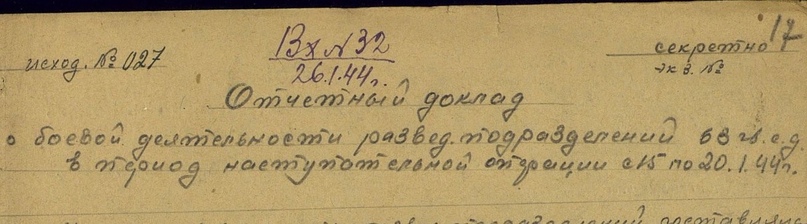 17
исход. № 027
Вх N 32
26.1.44г.
секретно
экз. №
Отчетный доклад
о боевой деятельности развед. подразделений 63 гв. с.д.
в период наступательной операции с 15 по 20.1.44г.